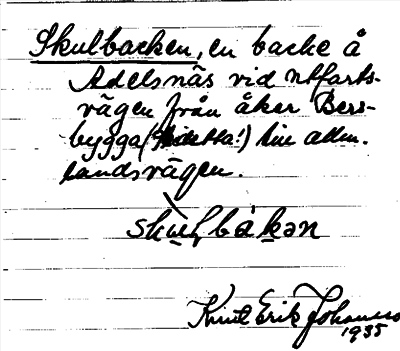 Skulbacken, en backe å
Adelsnäs vid utfarts-
vägen från åker Bers-
bygga (Se detta!) till allm.
landsvägen.
skuɫbakən
Knut Erik Johansson
1935